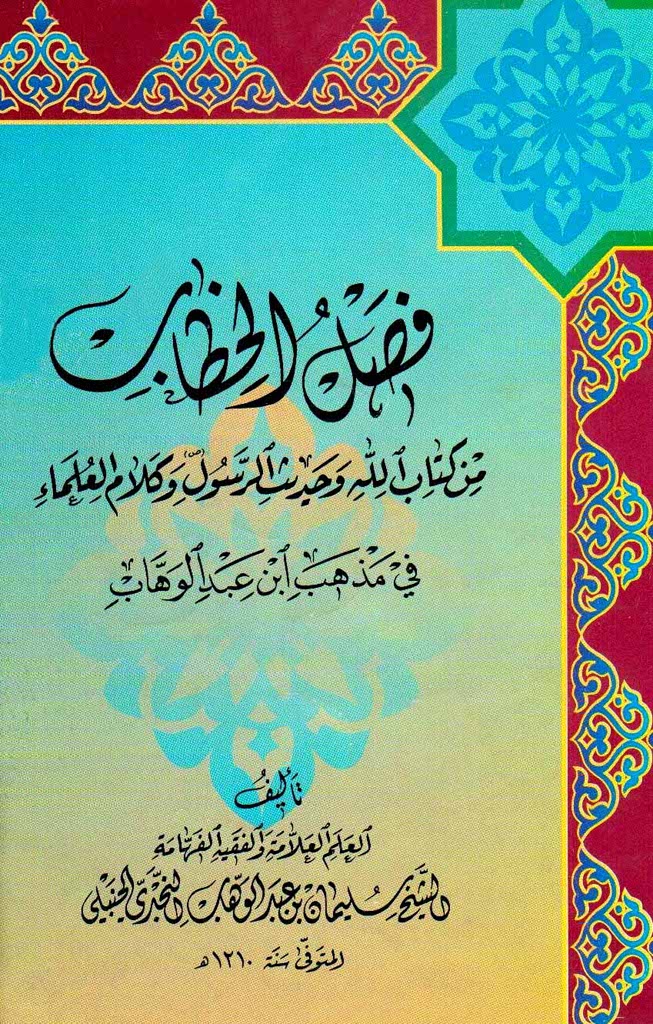 فَصْلُ الْخِطَابِ
مِنْ كِتَابِ اللهِ وَحَدِيثِ الرَّسُولِ ﷺ وَكَلَامِ الْعُلَمَاءِ
فِيْ مَذْهَبِ ابْنِ عَبْدِ الْوَهَّابِ
تَأْلِيفُ
العَلَمِ العَلَّامَةِ وَالفَقِيهِ الفَهَّامَةِ
الشَّيْخِ سُلَيمَان بن عَبدِ الوَهَّاب النَّجْدِيّ الحَنْبَلِي
المتوَفّى سَنَة ١٢١٠ هـ